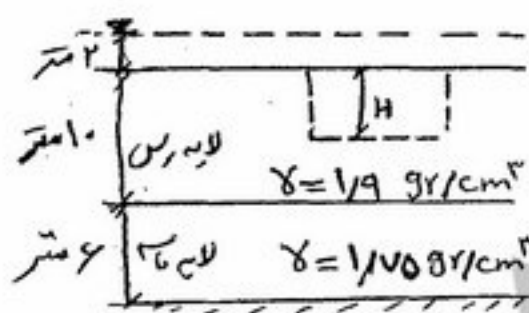 ۲ متر
H
۱۰ متر
لایه رس
γ = ۱٫۹ gr/cm³
۶ متر
لایه ماسه
γ = ۱٫۷۵ gr/cm³